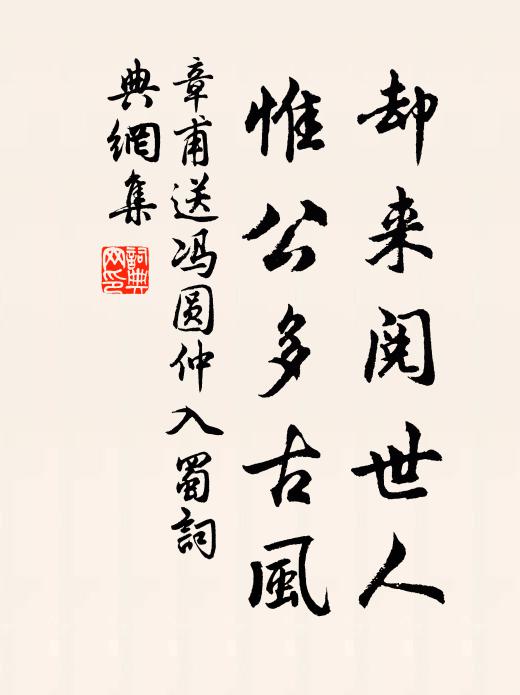 却来阅世人
惟公多古風
章甫送冯圆仲入蜀詞
典網集
詞典
网印